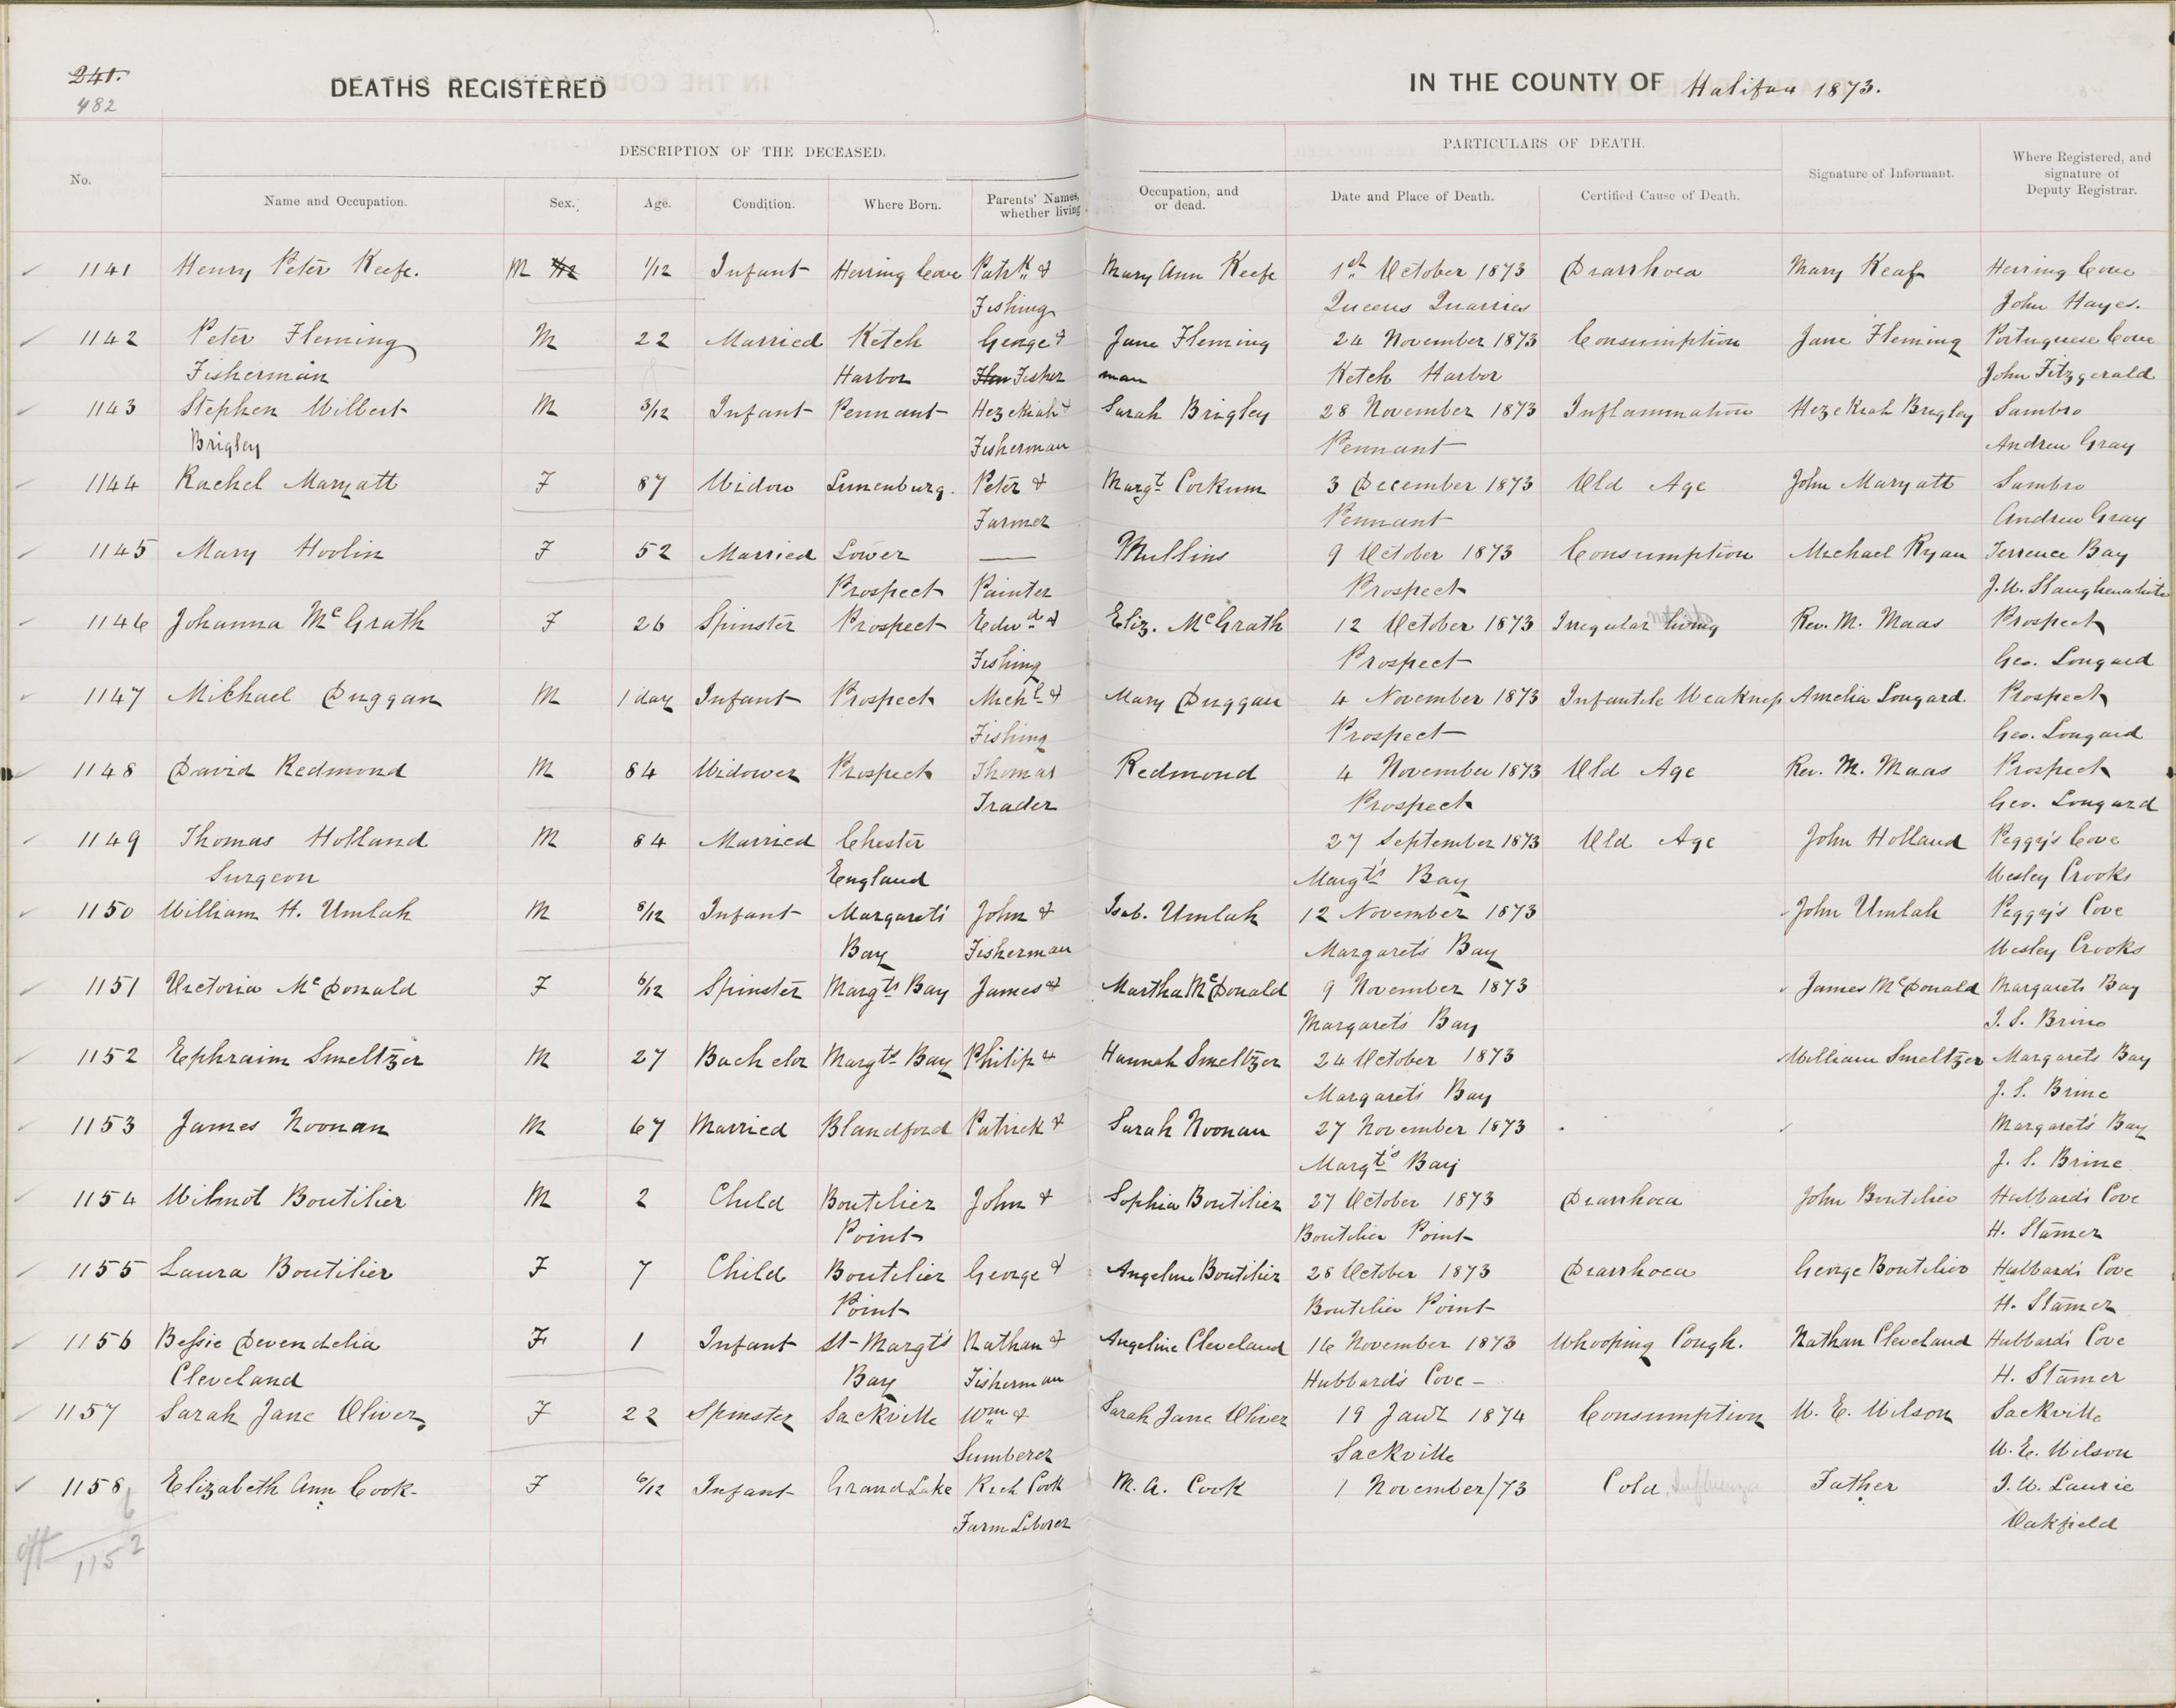 241.
482
DEATHS REGISTERED IN THE COUNTY OF Halifax 1873.
DESCRIPTION OF THE DECEASED. PARTICULARS OF DEATH.
No. Name and Occupation. Sex. Age. Condition. Where Born. Parents' Names, whether living Occupation, and or dead. Date and Place of Death. Certified Cause of Death. Signature of Informant. Where Registered, and signature of Deputy Registrar.
1141 Henry Peter Keefe. M 1/12 Infant Herring Cove Patrk & Mary Ann Keefe 1st October 1873 Diarrhoea Mary Keaf Herring Cove
Fishing Queens Quarries John Hayes.
1142 Peter Fleming M 22 Married Ketch George & Jane Fleming 24 November 1873 Consumption Jane Fleming Portuguese Cove
Fisherman Harbor Fisher man Ketch Harbor John Fitzgerald
1143 Stephen Wilbert M 3/12 Infant Pennant Hezekiah & Sarah Brigley 28 November 1873 Inflammation Hezekiah Brigley Sambro
Brigley Fisherman Pennant Andrew Gray
1144 Rachel Maryatt F 87 Widow Lunenburg. Peter & Margt Corkum 3 December 1873 Old Age John Maryatt Sambro
Farmer Pennant Andrew Gray
1145 Mary Hoolin F 52 Married Lower — Mullins 9 October 1873 Consumption Michael Ryan Terrence Bay
Prospect Painter Prospect J.W. Slaughenwhite
1146 Johanna McGrath F 26 Spinster Prospect Edwd & Eliz. McGrath 12 October 1873 Irregular living Rev. M. Maas Prospect
Fishing Prospect Geo. Longard
1147 Michael Duggan M 1 day Infant Prospect Michl & Mary Duggan 4 November 1873 Infantile Weakness Amelia Longard. Prospect
Fishing Prospect Geo. Longard
1148 David Redmond M 84 Widower Prospect Thomas Redmond 4 November 1873 Old Age Rev. M. Maas Prospect
Trader Prospect Geo. Longard
1149 Thomas Holland M 84 Married Chester 27 September 1873 Old Age John Holland Peggy's Cove
Surgeon England Margt's Bay Wesley Crooks
1150 William H. Umlah M 8/12 Infant Margaret's John & Isab. Umlah 12 November 1873 John Umlah Peggy's Cove
Bay Fisherman Margaret's Bay Wesley Crooks
1151 Victoria McDonald F 6/12 Spinster Margts Bay James & Martha McDonald 9 November 1873 James McDonald Margarets Bay
Margaret's Bay J. S. Brine
1152 Ephraim Smeltzer M 27 Bachelor Margts Bay Philip & Hannah Smeltzer 24 October 1873 William Smeltzer Margarets Bay
Margaret's Bay J. S. Brine
1153 James Noonan M 67 Married Blandford Patrick & Sarah Noonan 27 November 1873 Margaret's Bay
Margt's Bay J. S. Brine
1154 Wilmot Boutilier M 2 Child Boutilier John & Sophia Boutilier 27 October 1873 Diarrhoea John Boutilier Hubbard's Cove
Point Boutilier Point H. Stamer
1155 Laura Boutilier F 7 Child Boutilier George & Angeline Boutilier 28 October 1873 Diarrhoea George Boutilier Hubbard's Cove
Point Boutilier Point H. Stamer
1156 Bessie Devendelia F 1 Infant St Margt's Nathan & Angeline Cleveland 16 November 1873 Whooping Cough. Nathan Cleveland Hubbard's Cove
Cleveland Bay Fisherman Hubbard's Cove – H. Stamer
1157 Sarah Jane Oliver F 22 Spinster Sackville Wm & Sarah Jane Oliver 19 Janr 1874 Consumption W. E. Wilson Sackville
Lumberer Sackville W. E. Wilson
1158 Elizabeth Ann Cook F 6/12 Infant Grand Lake Rich Cook M. A. Cook 1 November/73 Cold, Influenza Father J. W. Laurie
6 Farm Laborer Oakfield
off 1152